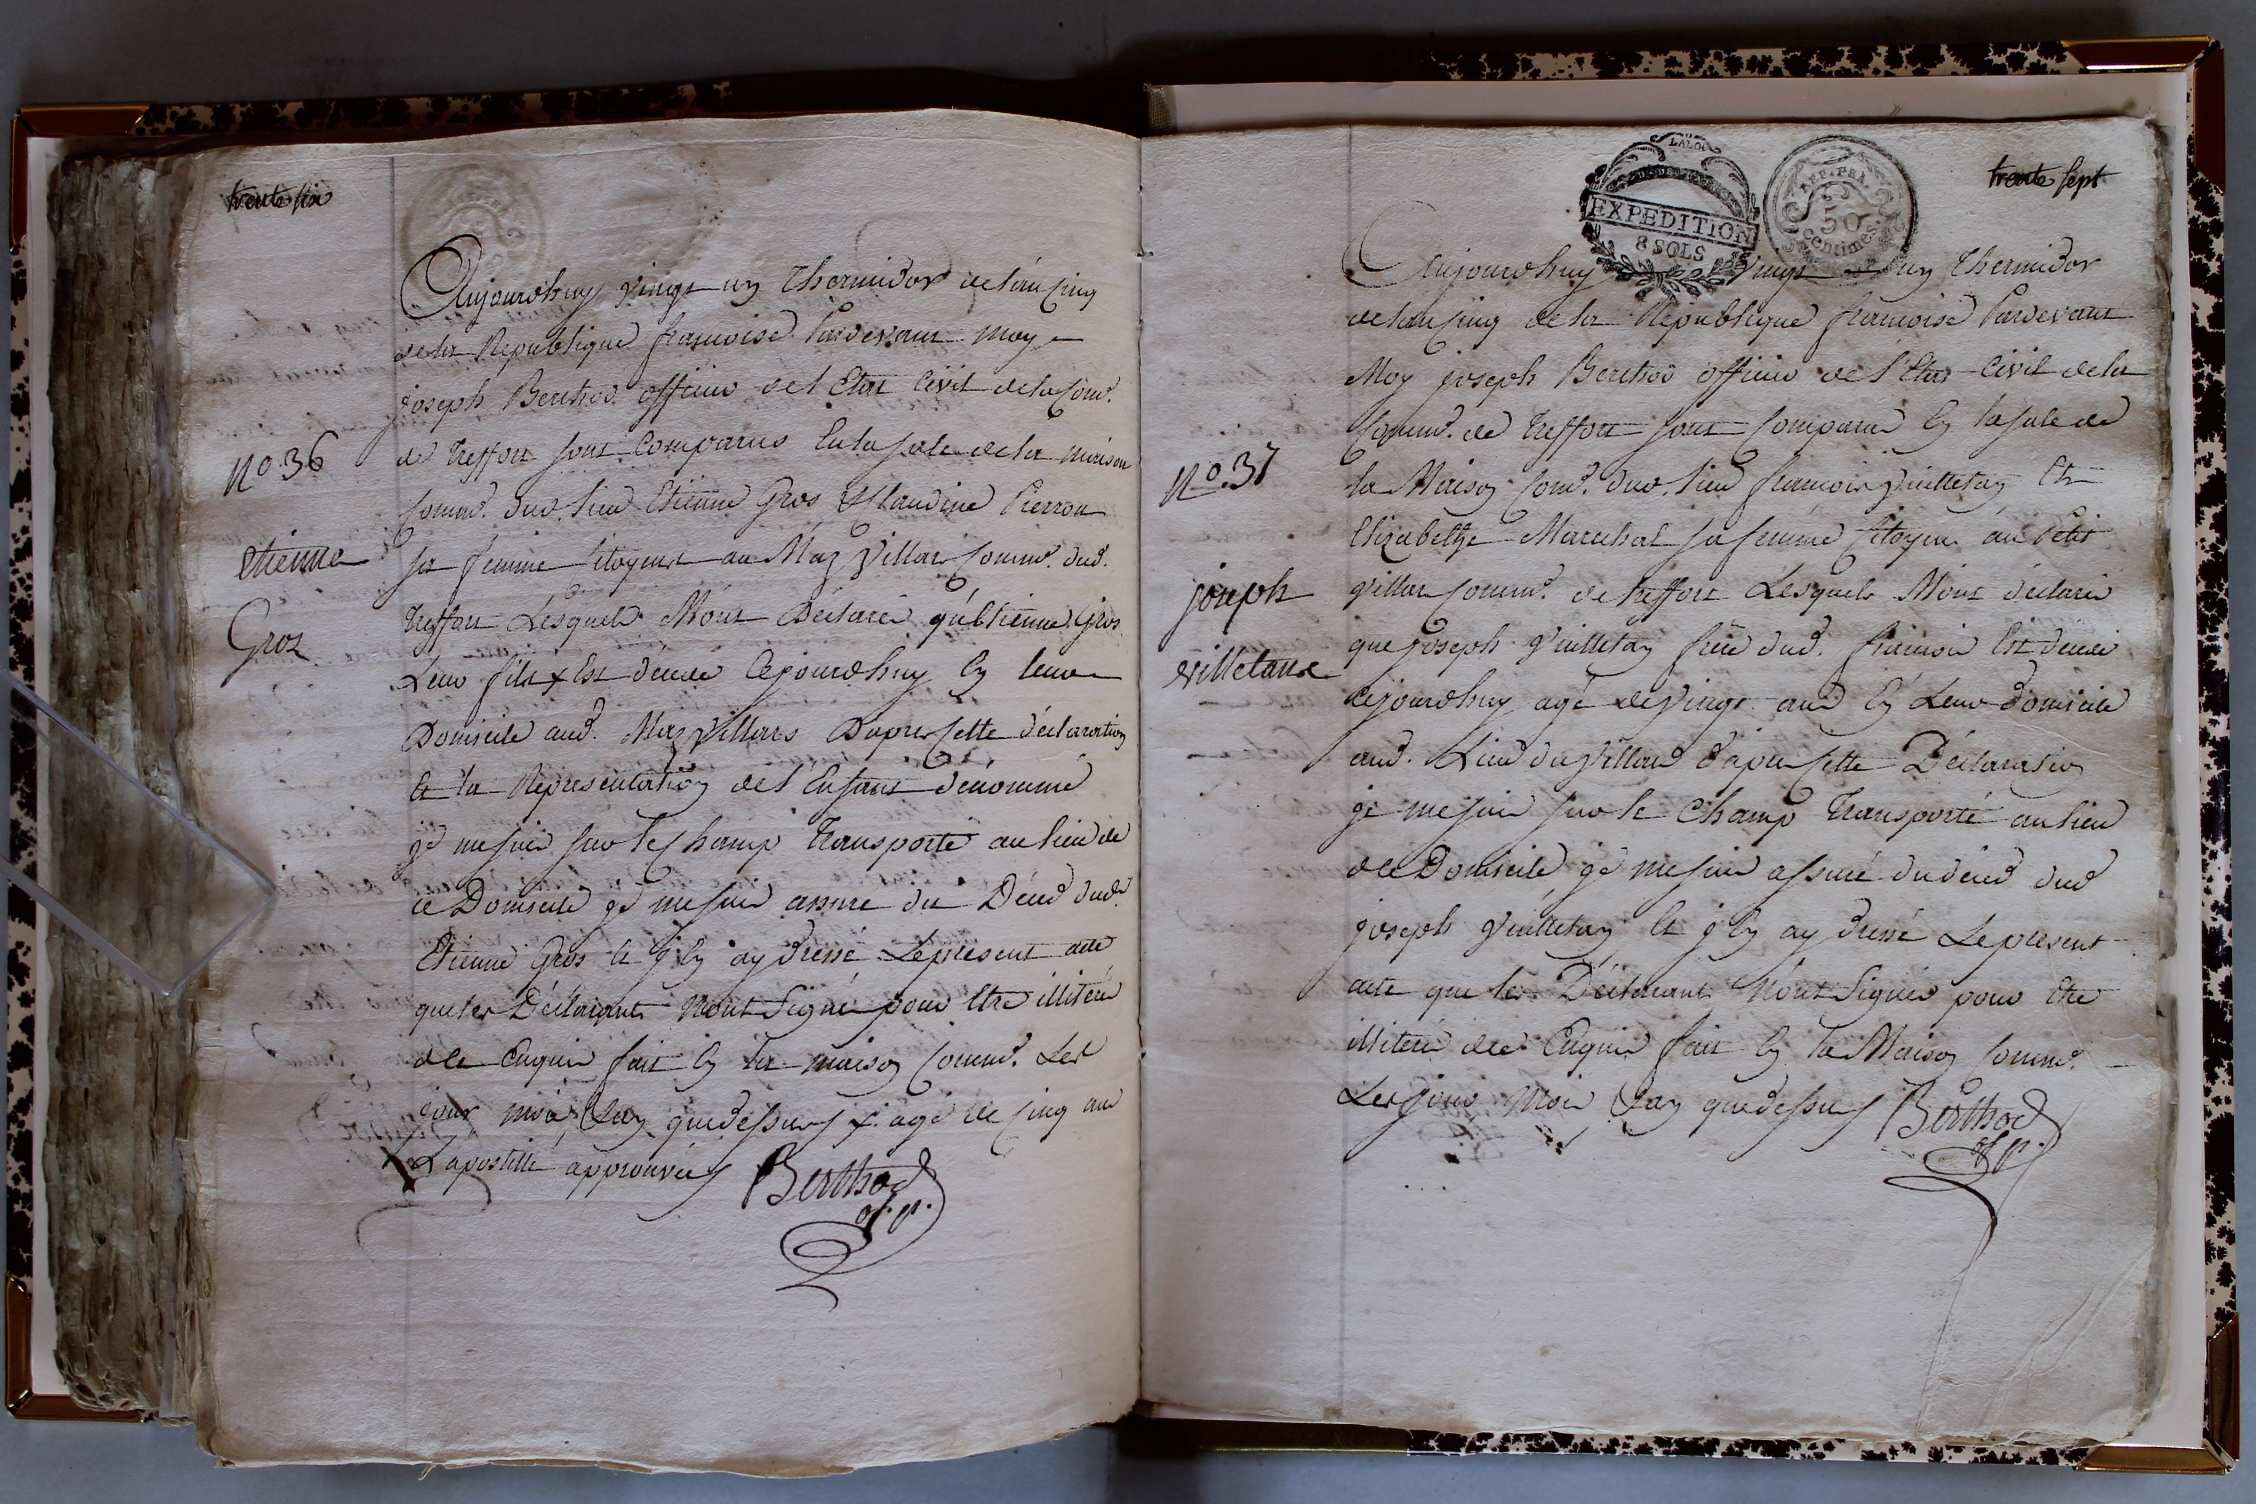 trente six
Aujourdhuy vingt un Thermidor de l'an cinq
de la Republique francoise Pardevant moy
joseph Berthod officier de l'Etat Civil de la Com.e
de Treffort sont Comparus En la sale de la maison
Comm.e dud. lieu Etienne Gros & Claudine Pierron
sa femme Citoyens au Maz Villars Comm.e dud.
Treffort Lesquels M'ont Déclaré qu'Etienne Gros
Leur fils x Est décedé Cejourdhuy En leur
Domicile aud. Maz Villars D'apres Cette déclaration
Et la Representation de l'Enfant dénommé
je me suis sur le Champ transporté au lieu de
ce Domicile je me suis assuré du Décéd dud.
Etienne Gros Et j'En ay dressé Le present acte
que les Déclarants N'ont Signé pour Etre illiteré
de ce Enquis fait En la maison Comm.e Les
jour mois & an que dessus x. agé de cinq ans
L'apostille approuvée
Berthod
of. p.
No. 36
etienne
Gros
trente sept
LALOI
EXPEDITION
8 SOLS
50
Centimes
Aujourdhuy vingt un Thermidor
de l'an cinq de la Republique francoise Pardevant
Moy joseph Berthod officier de l'Etat Civil de la
Comm.e de Treffort sont Comparus En la sale de
la Maison Com.e dud. lieu francois Vuilletan Et
Elizabethe Marechal sa femme Citoyens au Petit
Villar Comm.e de Treffort Lesquels M'ont déclaré
que joseph Vuilletan frere dud. francois Est décedé
cejourdhuy agé de vingt ans En Leur domicile
aud. Lieu du Villars d'apres Cette Déclaration
je me suis sur le Champ Transporté au lieu
de ce Domicile je me suis assuré du décéd dud
joseph Vuilletan Et j'En ay dressé Le present
acte que les Déclarants N'ont Signés pour Etre
illiteré de ce Enquis fait En la Maison Comm.e
Les jour Mois & an que dessus
Berthod
of. p.
No. 37
joseph
villetan